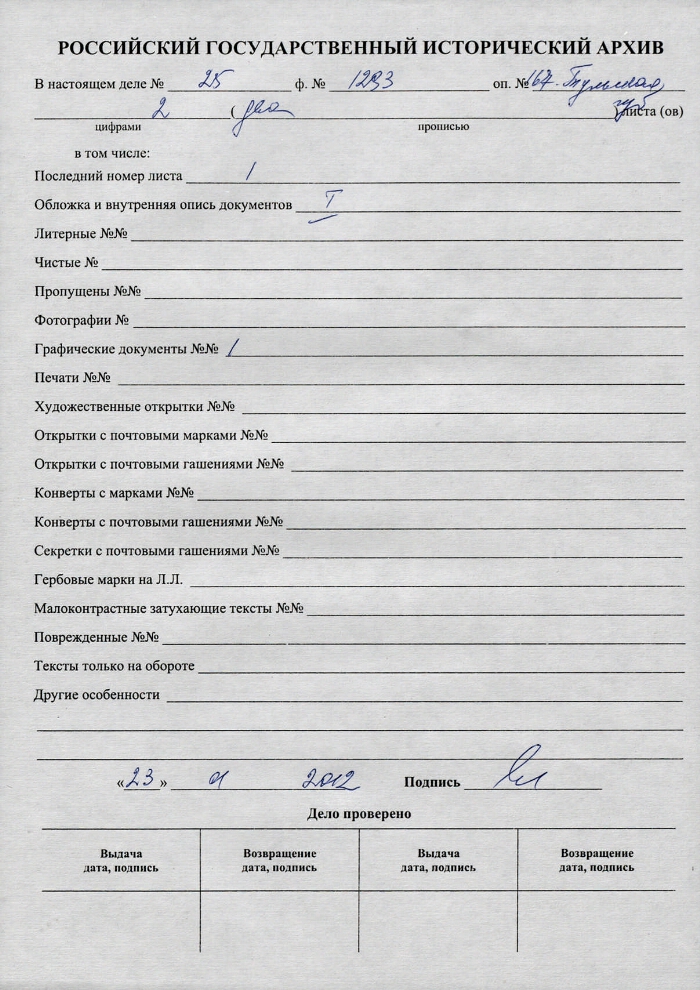 РОССИЙСКИЙ ГОСУДАРСТВЕННЫЙ ИСТОРИЧЕСКИЙ АРХИВ
В настоящем деле № 25 ф. № 1293 оп. № 167. Тульская
2 ( два губ ) листа (ов)
цифрами прописью
в том числе:
Последний номер листа 1
Обложка и внутренняя опись документов Т
Литерные №№
Чистые №
Пропущены №№
Фотографии №
Графические документы №№ 1
Печати №№
Художественные открытки №№
Открытки с почтовыми марками №№
Открытки с почтовыми гашениями №№
Конверты с марками №№
Конверты с почтовыми гашениями №№
Секретки с почтовыми гашениями №№
Гербовые марки на Л.Л.
Малоконтрастные затухающие тексты №№
Поврежденные №№
Тексты только на обороте
Другие особенности
«23» 2012 Подпись
Дело проверено
Выдача дата, подпись Возвращение дата, подпись Выдача дата, подпись Возвращение дата, подпись